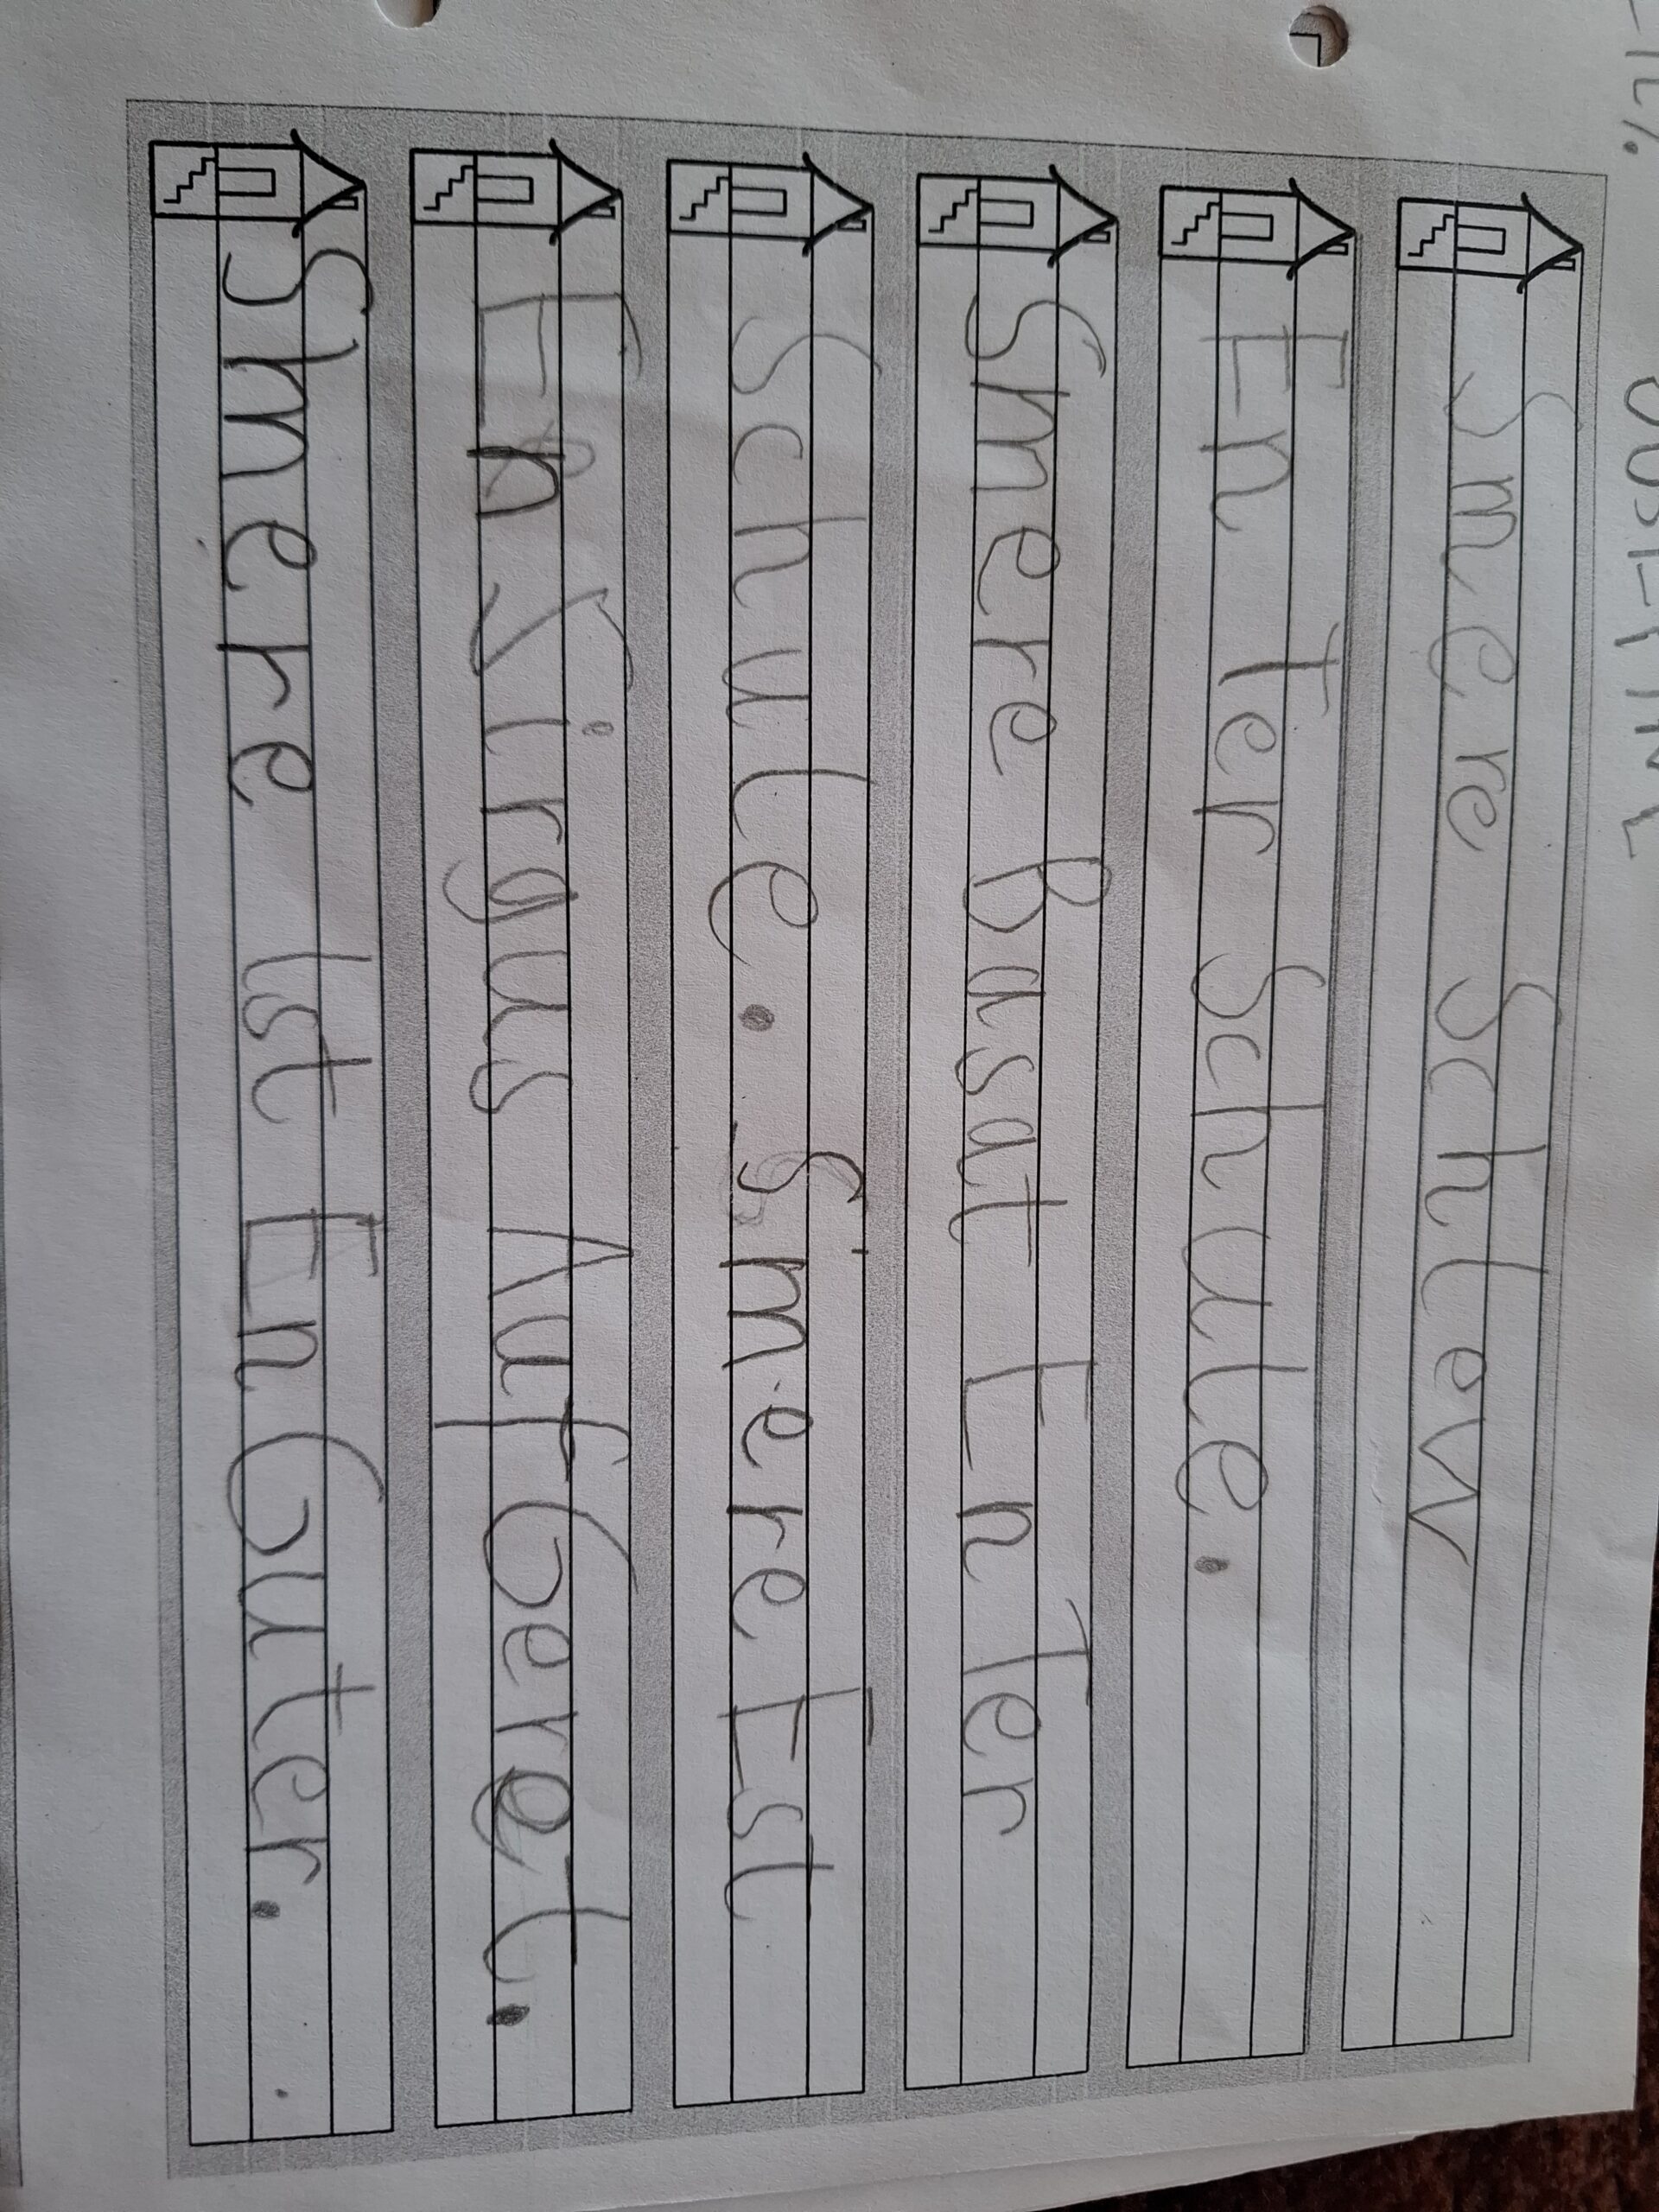 Smere Schlew
En ter Schule.
Smere Basat En Ter
Schule. Smere Est
En Auf Geret.
Smere Ist En Guter.